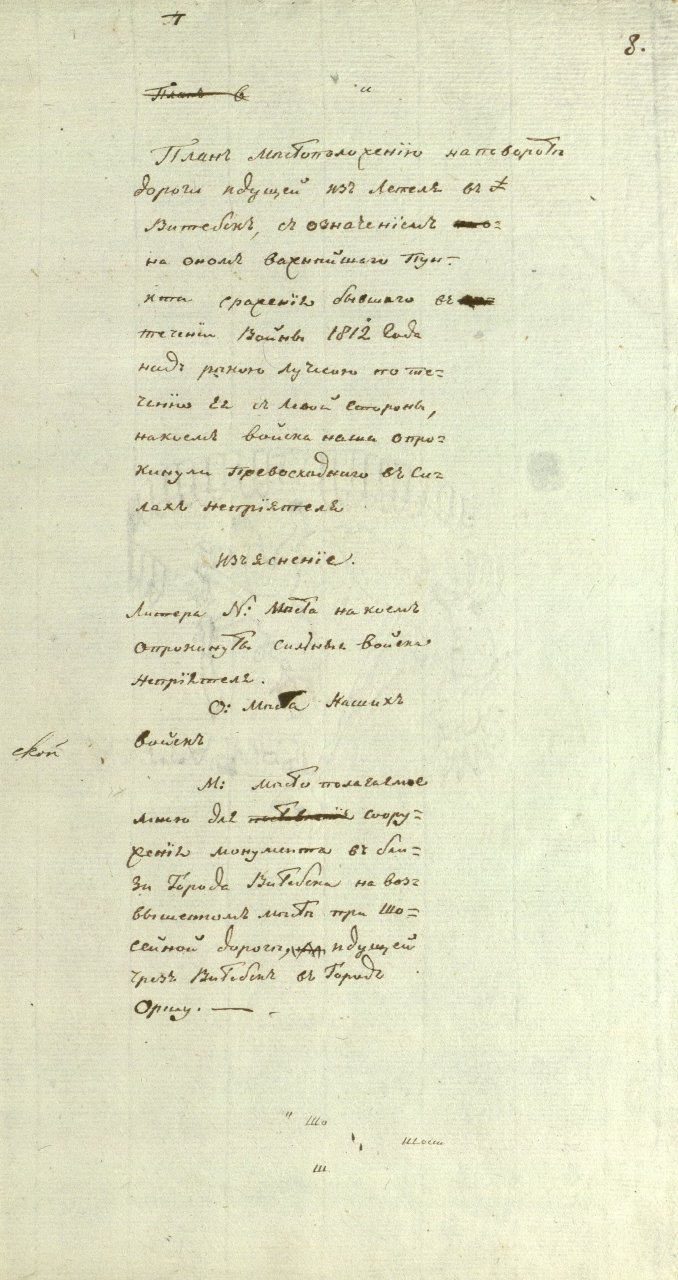 П
8.
Планъ в
Планъ мѣстоположенію на поворотѣ
дороги идущей изъ Лепеля въ
Витебскъ, съ означеніемъ
на ономъ важнѣйшаго Пун-
кта сраженія бывшаго въ
теченіи Войны 1812 Года
надъ рѣкою Лучесою по те-
ченію ее съ Левой Стороны,
на коемъ войска наши опро-
кинули превосходнаго въ Си-
лахъ непріятеля
Изъясненіе.
Литера N: Мѣста на коемъ
опрокинутъ сильныя войска
непріятеля.
О: Мѣста Нашихъ
войскъ
ской
М: мѣсто полагаемое
мною для соору-
женія монумента въ бли-
зи Города Витебска на воз-
вышенномъ мѣстѣ при Шо-
сейной дороги, идущей
чрезъ Витебскъ въ Городъ
Оршу. —
Шо
шосш
ш